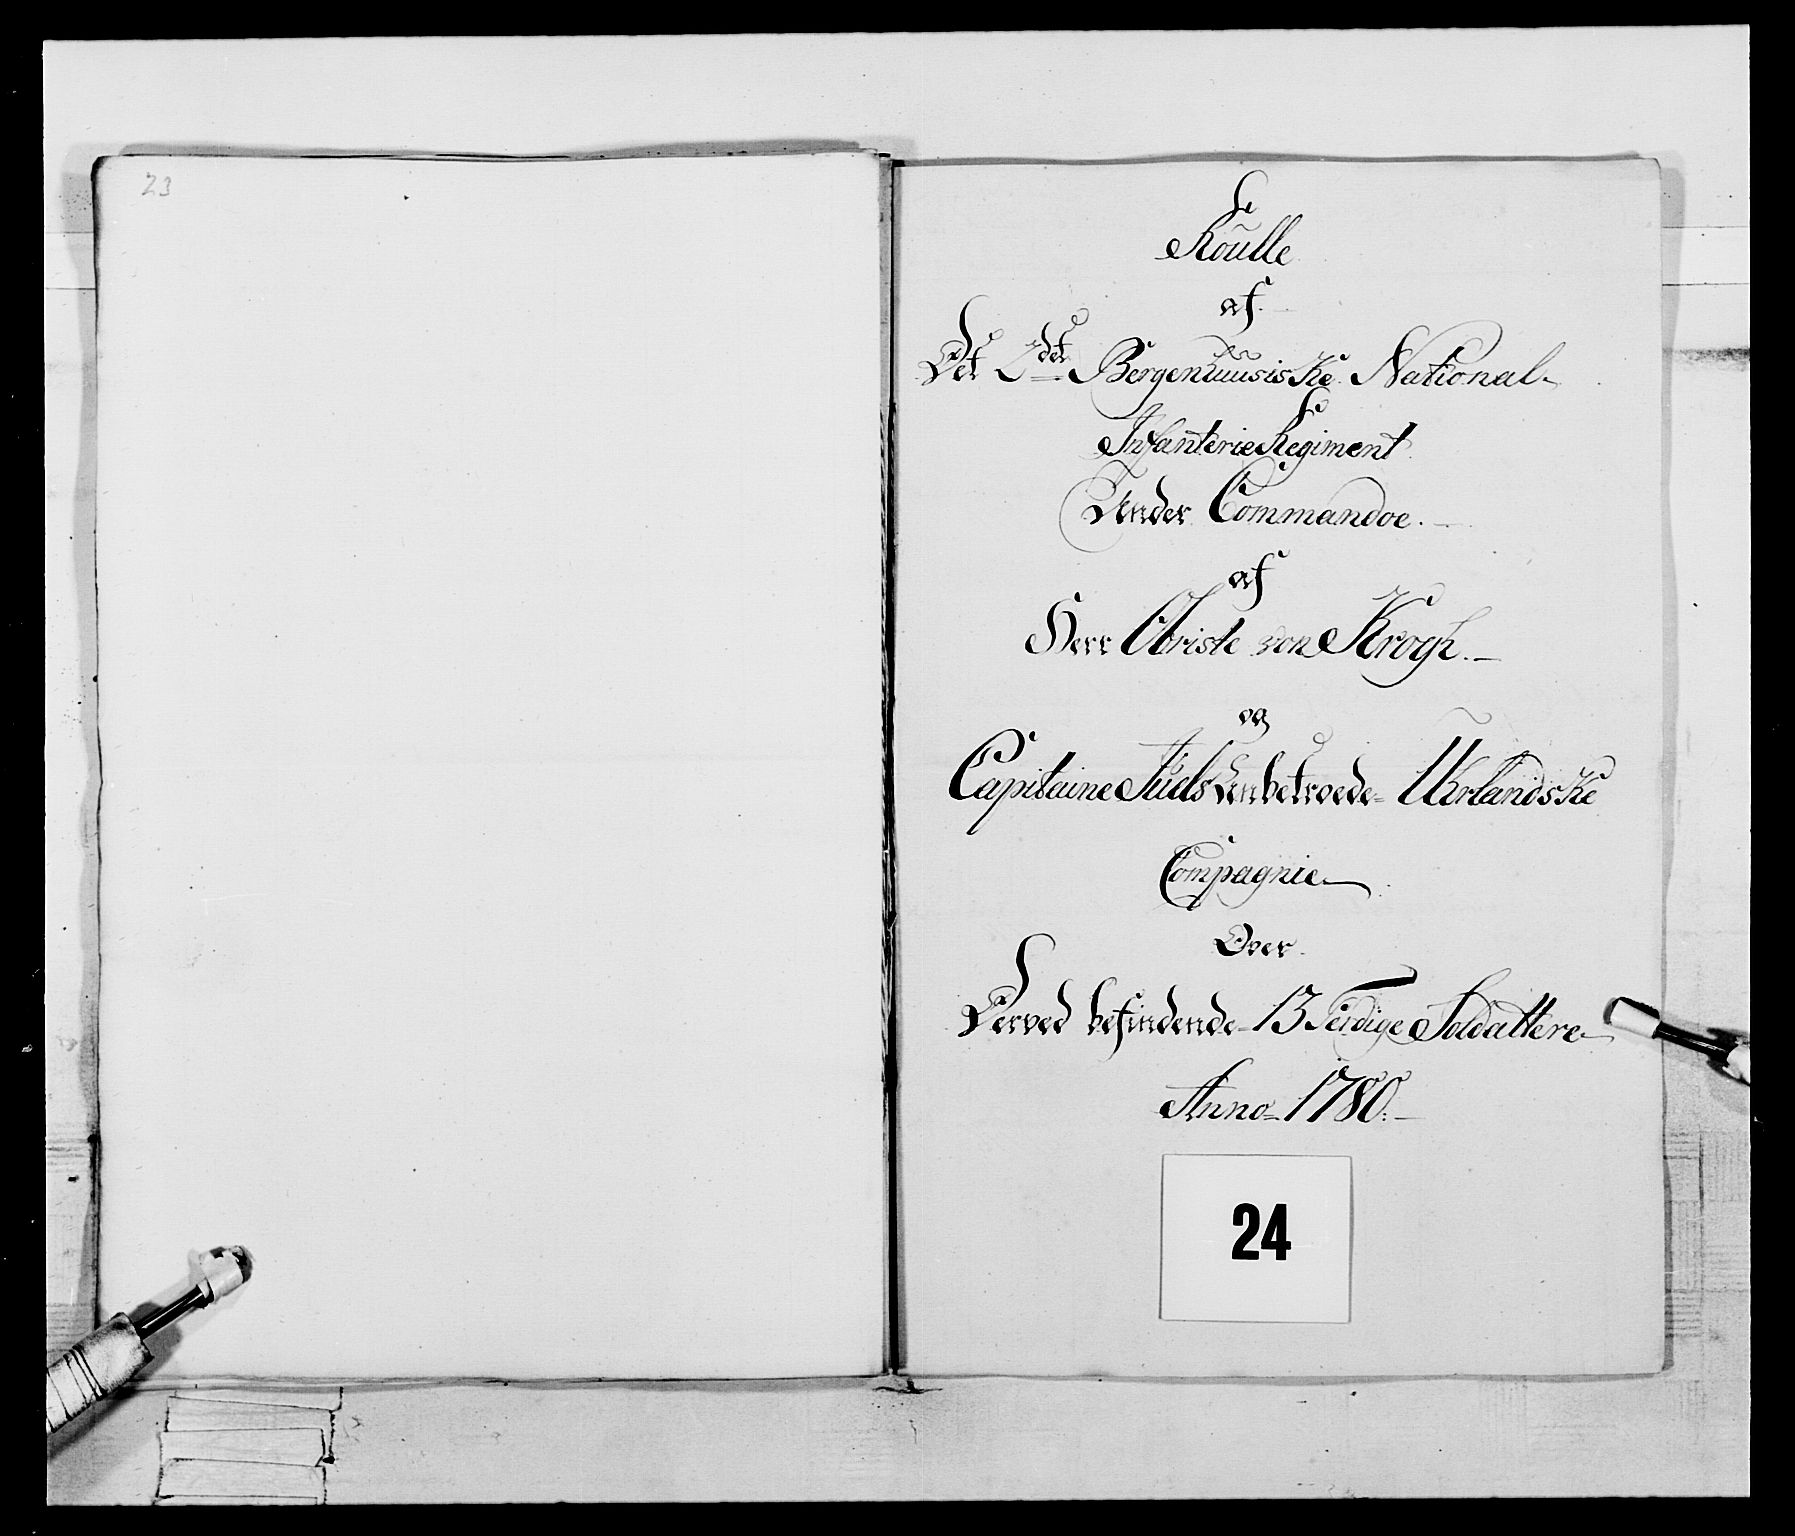 23
Roulle
af
Det 2det Bergenhuusiske National-
Infanterie Regiment
Under Commandoe.
af
Herr Obriste von Krogh.
og
Capitaine Juels Anbetroede Uhrlandske
Compagnie
Over
Derved befindende 13 Ferdige Soldattere
Anno 1780.
24